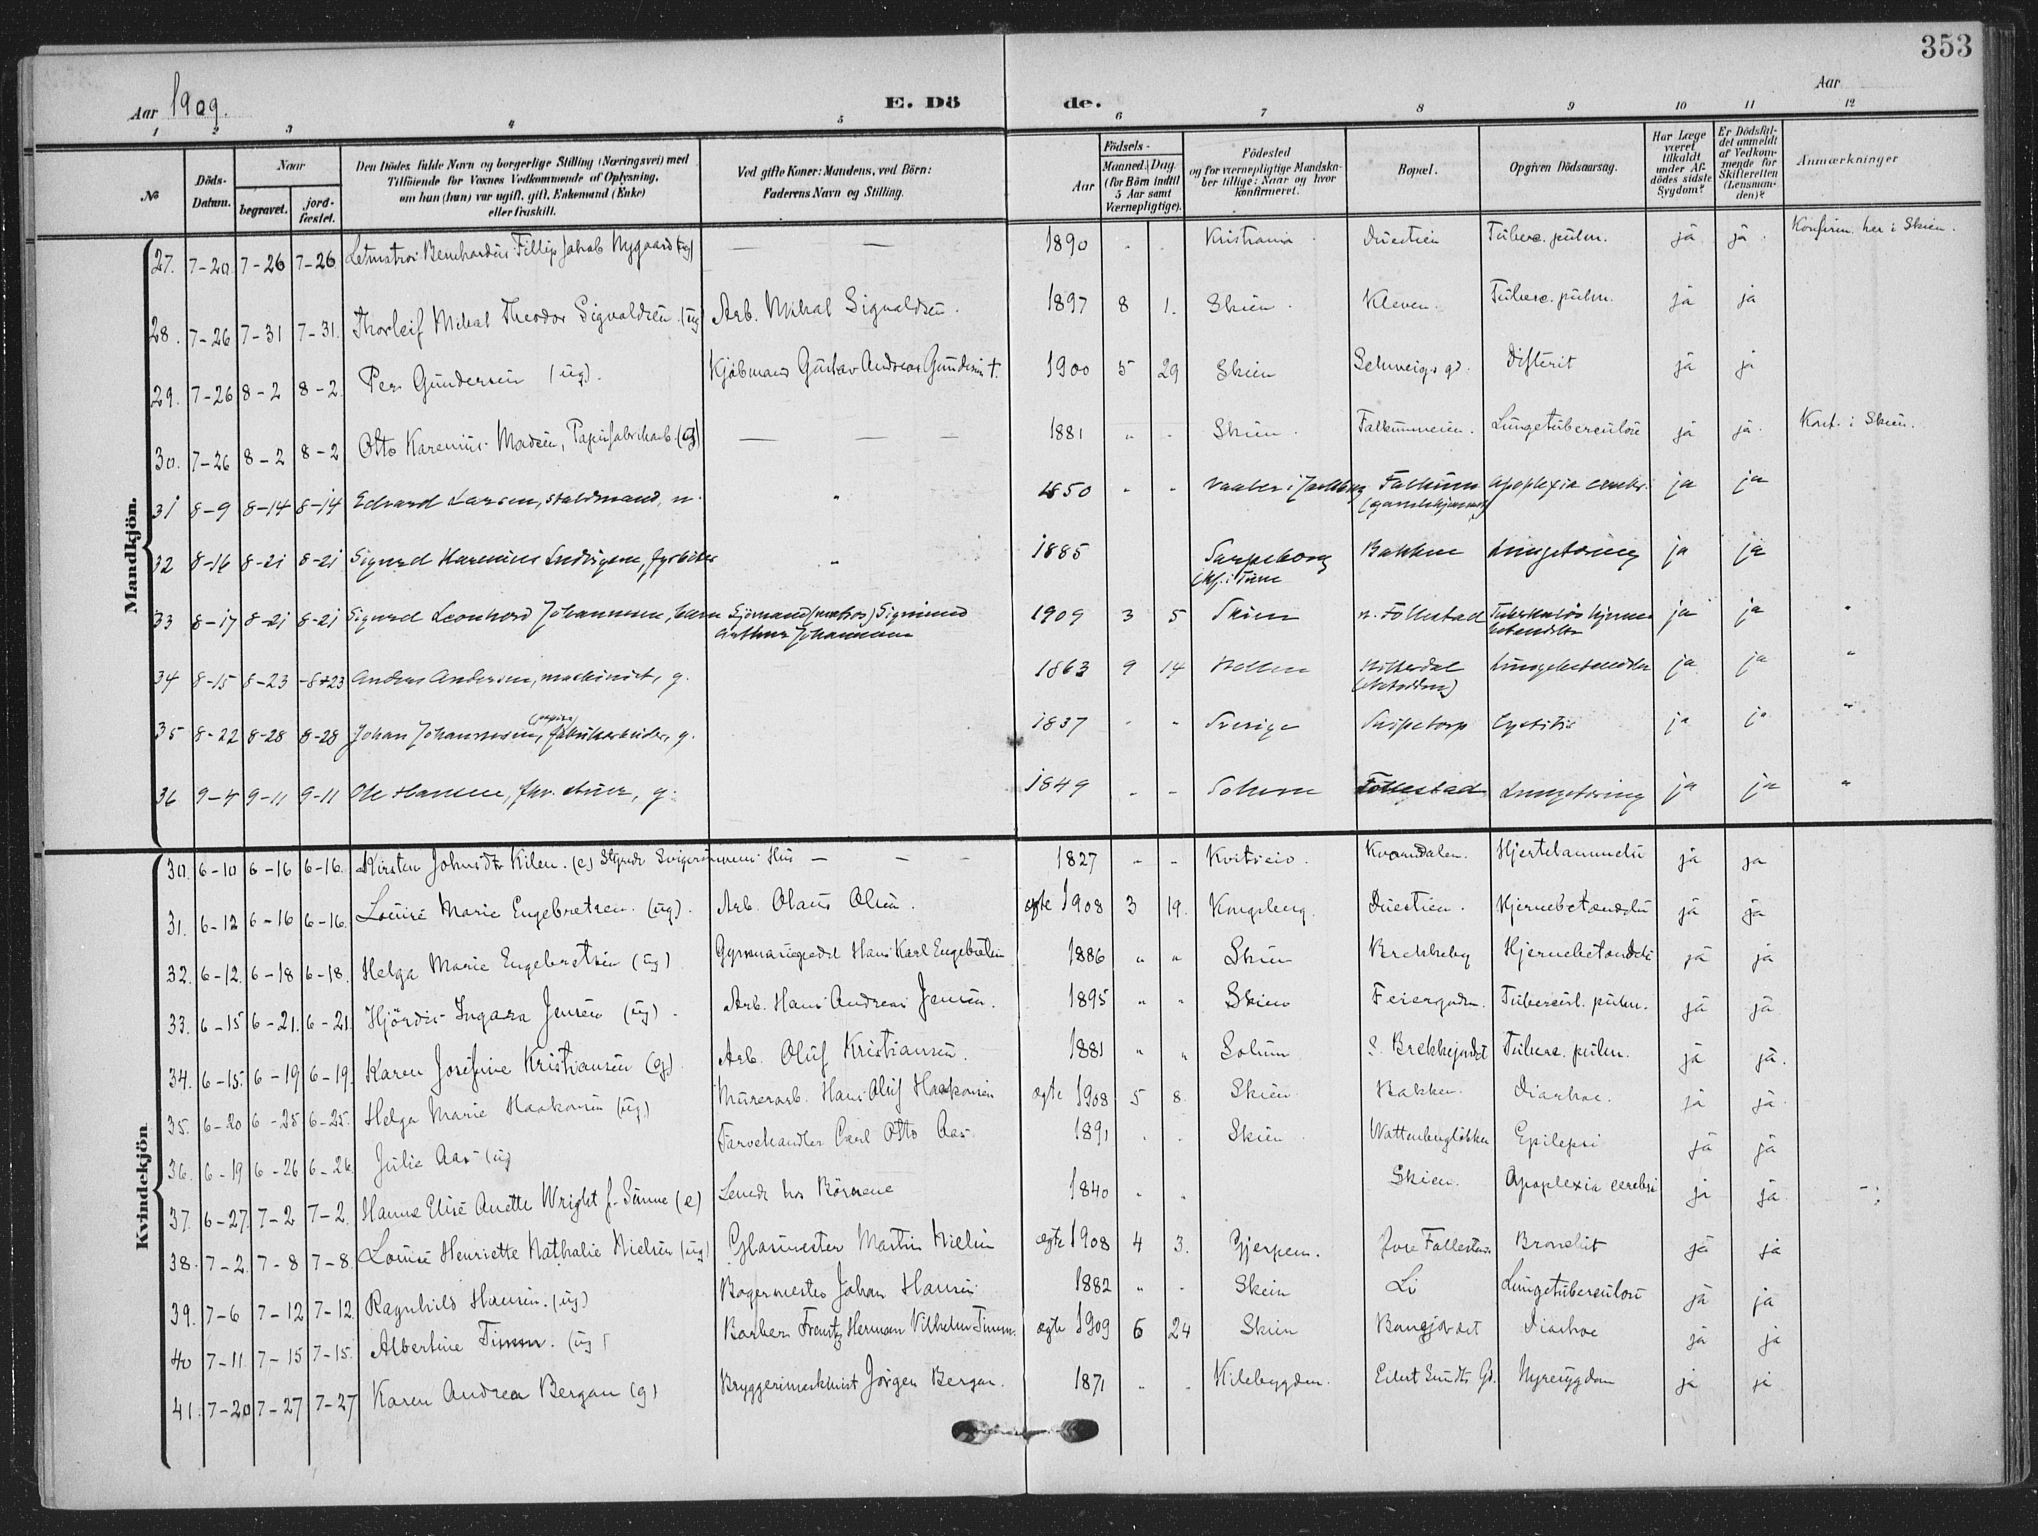 353
Aar 1909.
E. Dö
de.
Aar
1 2 3 4 5 6 7 8 9 10 11 12
№
Döds-Datum.
Naar
begravet.
jord-fæstet.
Den Dödes fulde Navn og borgerlige Stilling (Næringsvei) med Tilföiende for Voxnes Vedkommende af Oplysning, om han (hun) var ugift, gift, Enkemand (Enke) eller fraskilt.
Ved gifte Koner: Mandens, ved Börn: Faderens Navn og Stilling.
Födsels-
Aar
Maaned. Dag
(for Börn indtil 5 Aar samt Værnepligtige).
Födested og for værnepligtige Mandska-ber tillige: Naar og hvor konfirmeret.
Bopæl.
Opgiven Dödsaarsag.
Har Læge været tilkaldt under Af-dödes sidste Sygdom?
Er Dödsfal-det anmeldt af Vedkom-mende for Skifteretten (Lensman-den)?
Anmærkninger
Mandkjön.
27. 7-20 7-26 7-26 Bernhardus Fillip Jakob Nygaard (ug) — — 1890 Kristiania Duestien Tuberc. pulm. ja ja Konfirm. her i Skien.
28. 7-26 7-31 7-31. Thorleif Mikal Theodor Sigvaldsen (ug) Arb. Mikal Sigvaldsen. 1897 8 1. Skien Kleven. Tuberc. pulm. ja ja
29. 7-26 8-2 8-2. Per Gundersen (ug). Kjøbmand Gustav Andreas Gundersen †. 1900 5 29 Skien Schweigs gd. Difterit ja ja
30. 7-26 8-2 8-2 Otto Karenius Madsen, Papirfabrikarb. (g) — — — 1881 " - Skien Falkumveien. Lungetuberculose ja ja. Konf. i Skien.
31 8-9 8-14 8-14 Edvard Larsen, staldmand, " 1850 - - i Jarlsberg Falkum Apoplexia cerebr. ja ja
32 8-16 8-21 8-21 Sigurd Karenius Ludvigsen, fyrbøder " 1885 Sarpsborg Bakken Lungetæring ja ja
(kf. i Tune
33 8-17 8-21 8-21 Sigurd Leonhard Johannessen, barn Sjømand (matros) Sigmund 1909 3 5 Skien n. Follestad Tuberkuløs hjerne- ja ja "
Arthur Johannessen betændelse
34 8-15 8-23 -8+23 Andreas Andersen, maskinist, g. 1863 9 14 Hitterdal Lungebetændelse ja ja "
(Notodden)
35 8-22 8-28 8-28 Johan Johannessen, (papir) fabrikarbeider, g. 1837 - - Sverige Cystitis ja ja "
36 9-4 9-11 9-11 Ole Hansen, g. 1849 - - Solum Follestad Lungetæring ja ja "
Kvindekjön
30. 6-10 6-16 6-16. Kirsten Johnsdtr Kilen. (e) Styrede Svigersønnens Hus — - - 1827 " - Kvitseid. Kverndalen. Hjertelammelse ja ja
31. 6-12 6-16 6-16. Louise Marie Engebretsen. (ug). Arb. Olaus Olsen. egte 1908 3 19. Kongsberg. Duestien. Hjernebetændelse ja ja
32. 6-12. 6-18 6-18. Helga Marie Engebretsen (ug) Hans Karl Engebretsen 1886 " " Skien Brekkeby Hjernebetændelse ja ja
33. 6-15 6-21. 6-21. Hjördis Ingara Jensen (ug). Arb. Hans Andreas Jensen. 1895 " " Skien Feiergaden. Tubercul. pulm. ja ja.
34. 6-15. 6-19 6-19. Karen Josefine Kristiansen (g). Arb. Oluf Kristiansen. 1881 " " Solum S. Brekkejordet Tuberc. pulm. ja ja.
35. 6-20 6-25 6-25. Helga Marie Haakonsen (ug.) Murerarb. Hans Oluf Haakonsen egte 1908 5 8. Skien. Bakken. Diarhoe. ja ja.
36. 6-19 6-26 6-26. Julie Aas (ug Farvehandler Carl Otto Aas. 1891 Skien. Wattenbergløkken Epilepsi ja ja
37. 6-27. 7-2 7-2. Hanna Elise Anette Wright f. Sunne (e) Levede hos Børnene 1840 " " Skien. Apoplexia cerebri ja ja.
38. 7-2. 7-8 7-8. Louise Henriette Nathalie Nielsen (ug) Glasmester Martin Nielsen egte 1908 4 3. Gjerpen. Øvre Follestad. Bronchit ja ja
39. 7-6 7-12 7-12. Ragnhild Hansen. (ug) Bagermester Johan Hansen 1882 " - Skien Li Lungetuberculose ja ja
40 7-11. 7-15 7-15. Albertine Timm. (ug) Barber Frantz Herman Vilhelm Timm. egte 1909 6 24 Skien Bangjordet Diarhoe ja ja
41. 7-20 7-27 7-27 Karen Andrea Bergan (g) Bryggerimaskinist Jörgen Bergan. 1871 - - Kilebygden. Eilert Sundts Gd. Nyresygdom ja ja